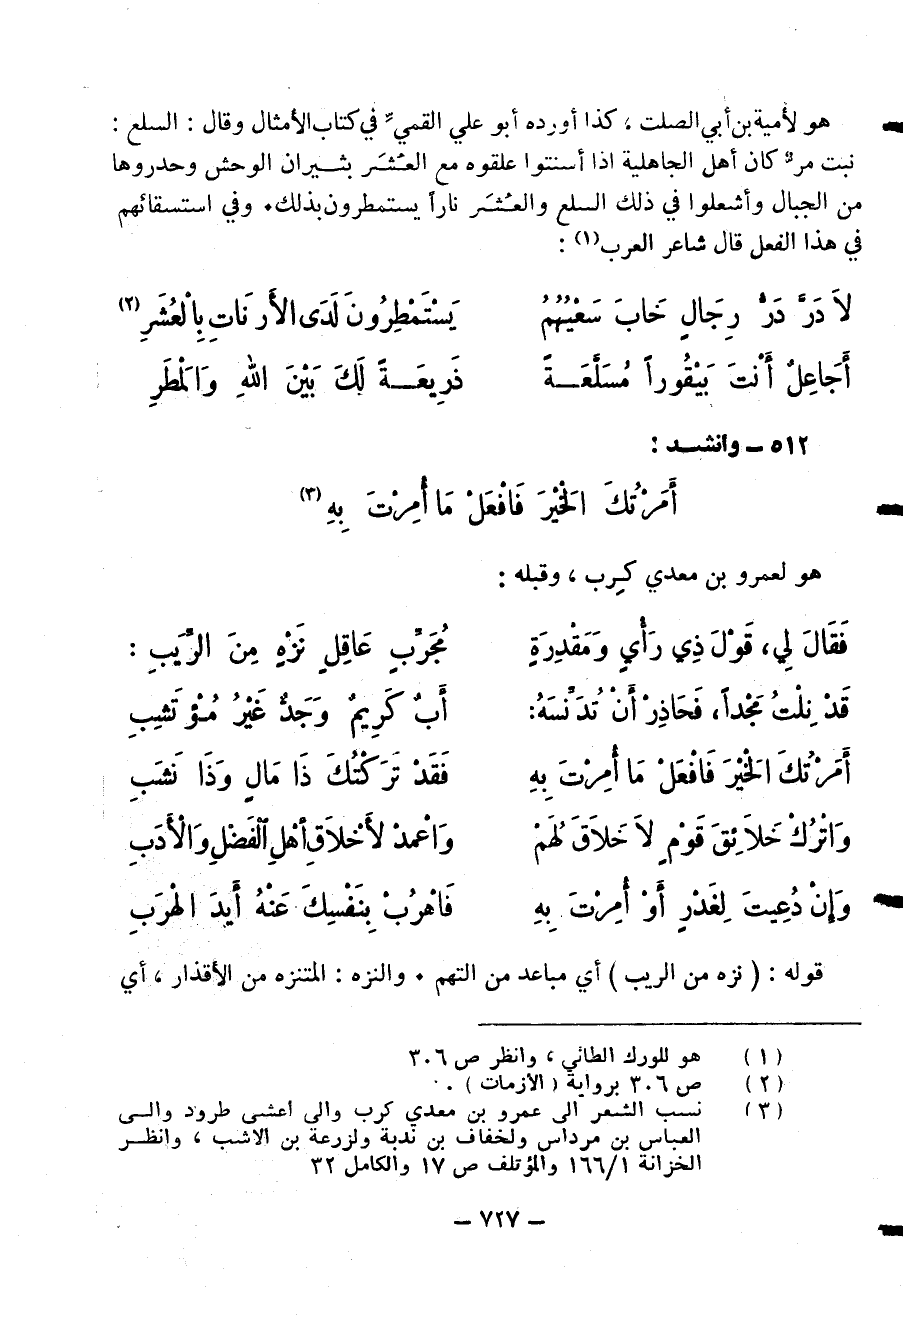 هو لأمية بن أبي الصلت ، كذا أورده أبو علي القمي ّ في كتاب الأمثال وقال : السلع :
نبت مر ّ كان أهل الجاهلية اذا أسنتوا علقوه مع العُشَر بثيران الوحش وحدروها
من الجبال وأشعلوا في ذلك السلع والعُشَر ناراً يستمطرون بذلك . وفي استسقائهم
في هذا الفعل قال شاعر العرب (١) :
لاَ دَرَّ دَرُّ رِجَالٍ خَابَ سَعْيُهُمُ يَسْتَمْطِرُونَ لَدَى الأَرنَاتِ بِالْعُشَرِ (٢)
أَجَاعِلٌ أَنْتَ بَيْقُوراً مُسَلَّعَةً ذَرِيعَةً لَكَ بَيْنَ اللهِ وَالْمَطَرِ
٥١٢ – وانشد :
أَمَرْتُكَ الخَيْرَ فَافْعَلْ مَا أُمِرْتَ بِهِ (٣)
هو لعمرو بن معدي كرِب ، وقبله :
فَقَالَ لِي، قَوْلَ ذِي رَأْيٍ وَمَقْدِرَةٍ مُجَرِّبٍ عَاقِلٍ نَزْهٍ مِنَ الرِّيَبِ :
قَدْ نِلْتُ مَجْداً، فَحَاذِرْ أَنْ تُدَنِّسَهُ: أَبٌ كَرِيمٌ وَجَدٌّ غَيْرُ مُؤْتَشِبِ
أَمَرْتُكَ الخَيْرَ فَافْعَلْ مَا أُمِرْتَ بِهِ فَقَدْ تَرَكْتُكَ ذَا مَالٍ وَذَا نَشَبِ
وَاتْرُكْ خَلاَئِقَ قَوْمٍ لاَ خَلاَقَ لَهُمْ وَاعْمدْ لأَخْلاَقِ أَهْلِ الْفَضْلِ وَالْأَدَبِ
وَإِنْ دُعِيتَ لِغَدْرٍ أَوْ أُمِرْتَ بِهِ فَاهْرُبْ بِنَفْسِكَ عَنْهُ أَيدَ الهْرَبِ
قوله : ( نزه من الريب ) أي مباعد من التهم . والنزه : المتنزه من الأقذار ، أي
(١) هو للورك الطائي ، وانظر ص ٣٠٦
(٢) ص ٣٠٦ برواية ( الازمات ) .
(٣) نسب الشعر الى عمرو بن معدي كرب والى أعشى طرود والى
العباس بن مرداس ولخفاف بن ندبة ولزرعة بن الاشب ، وانظر
الخزانة ١/١٦٦ والمؤتلف ص ١٧ والكامل ٣٢
– ٧٢٧ –